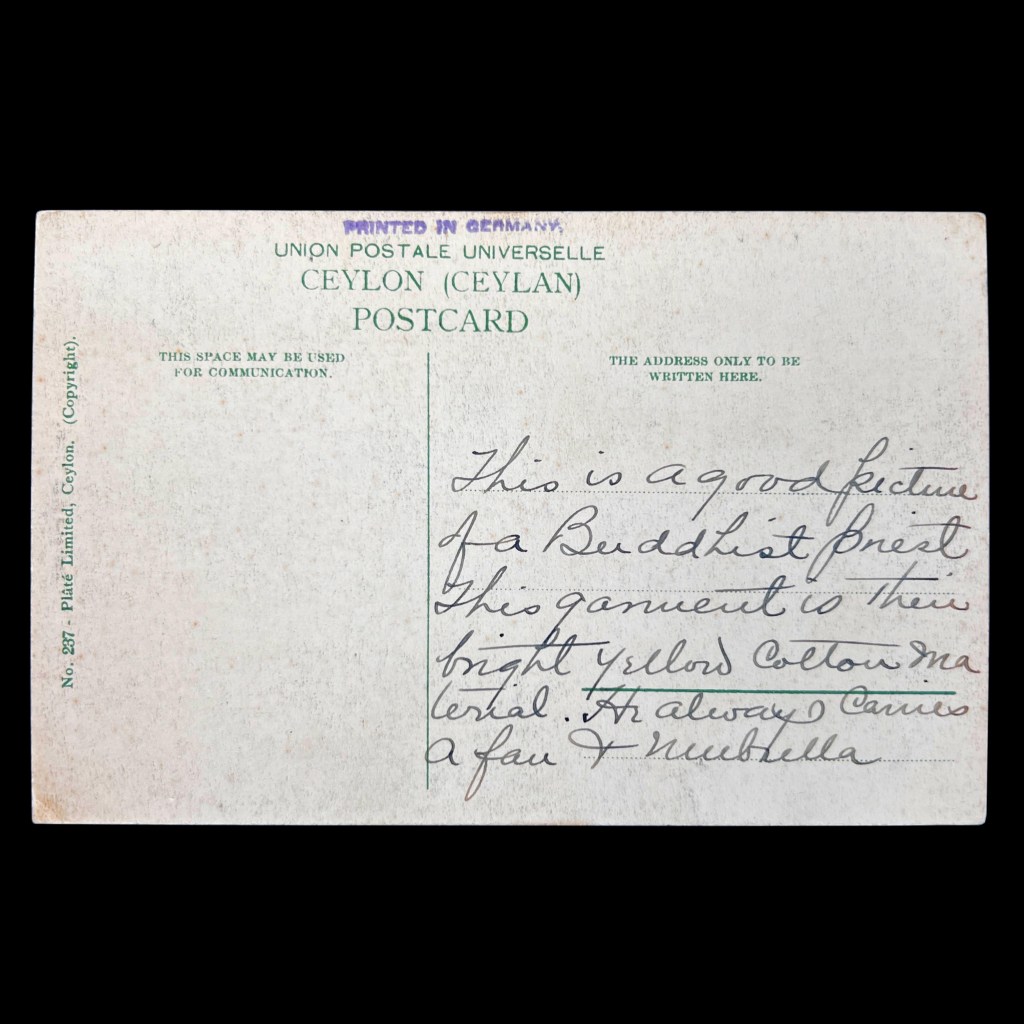 PRINTED IN GERMANY,
UNION POSTALE UNIVERSELLE
CEYLON (CEYLAN)
POSTCARD
THIS SPACE MAY BE USED
FOR COMMUNICATION.
THE ADDRESS ONLY TO BE
WRITTEN HERE.
No. 237 - Plâté Limited, Ceylon. (Copyright).
This is a good picture
of a Buddhist priest
This garment is their
bright yellow Cotton Ma
terial. He always Carries
a fan & Umbrella